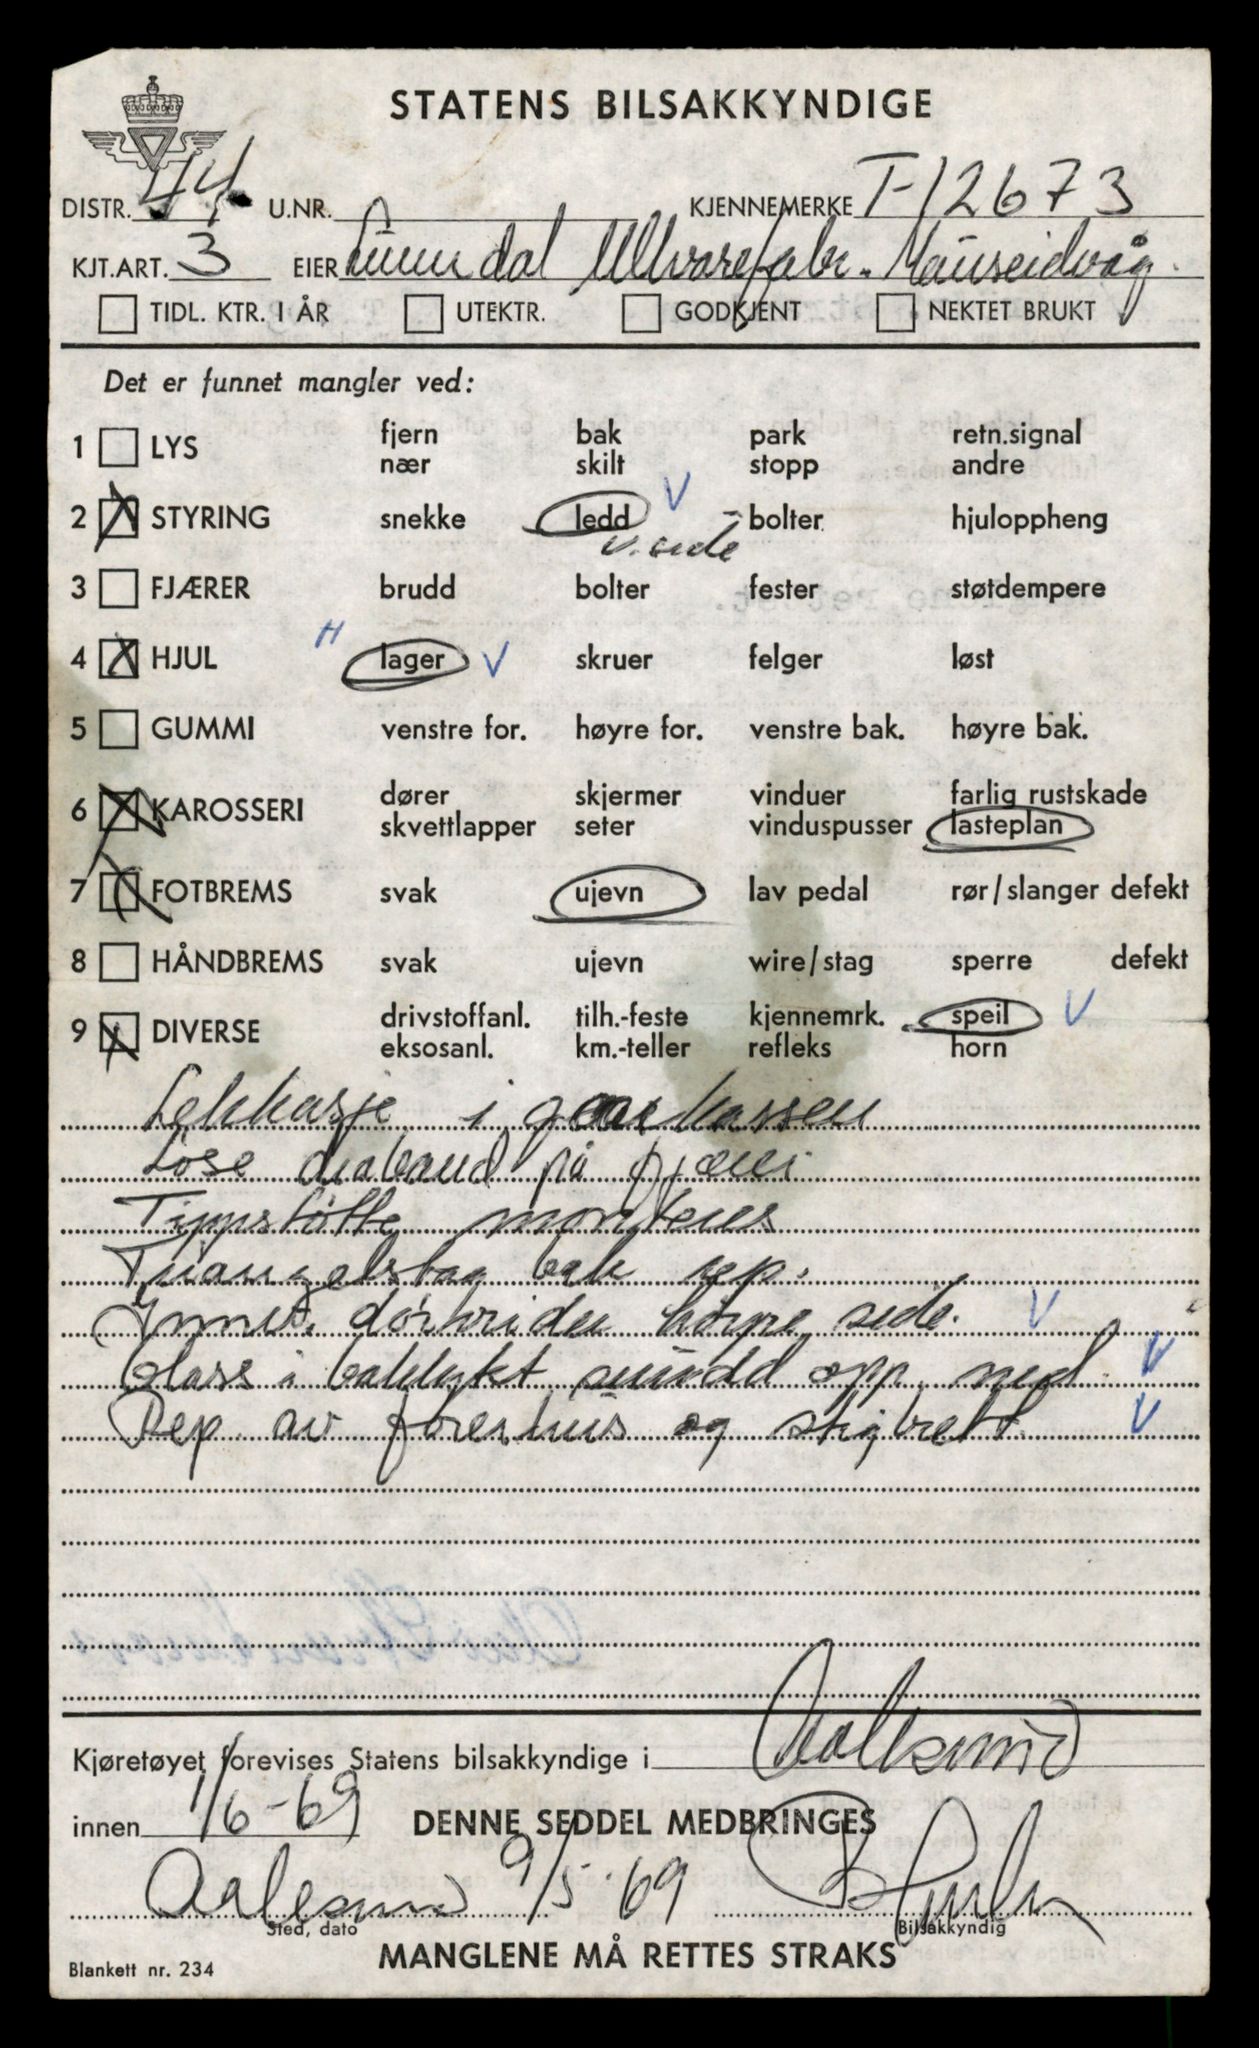 STATENS BILSAKKYNDIGE
DISTR. 44 U.NR. KJENNEMERKE T-12673
KJT.ART. 3 EIER Ullvarefabr. Mauseidvåg.
TIDL. KTR. I ÅR UTEKTR. GODKJENT NEKTET BRUKT
Det er funnet mangler ved:
1 LYS fjern bak park retn.signal
nær skilt stopp andre
2 STYRING snekke ledd V - bolter hjuloppheng
v. side
3 FJÆRER brudd bolter fester støtdempere
4 HJUL H lager V skruer felger løst
5 GUMMI venstre for. høyre for. venstre bak. høyre bak.
6 KAROSSERI dører skjermer vinduer farlig rustskade
skvettlapper seter vinduspusser lasteplan
7 FOTBREMS svak ujevn lav pedal rør/slanger defekt
8 HÅNDBREMS svak ujevn wire/stag sperre defekt
9 DIVERSE drivstoffanl. tilh.-feste kjennemrk. speil V
eksosanl. km.-teller refleks horn
Lekkasje i gearkassen
Løse på fjærer
Tippstøtte monteres
Triangelstag bak rep.
Innv. dørvrider høyre side. V
Glass i baklykt snudd opp ned. V
Rep. av førerhus og stigbrett. V
Kjøretøyet forevises Statens bilsakkyndige i Aalesund
innen 1/6-69 DENNE SEDDEL MEDBRINGES
Aalesund 9/5-69
Sted, dato Bilsakkyndig
MANGLENE MÅ RETTES STRAKS
Blankett nr. 234